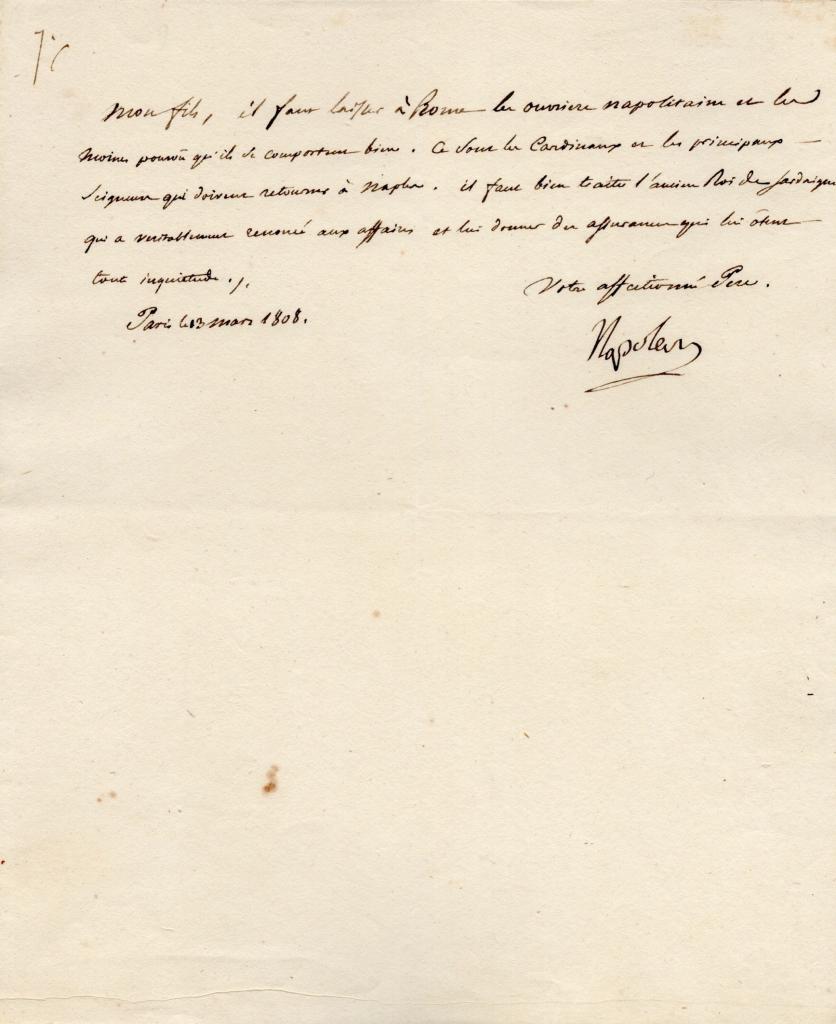 Mon fils, il faut laisser à Rome les ouvriers napolitains et les
moines pourvû qu'ils se comportent bien. Ce sont les Cardinaux et les principaux
Seigneurs qui doivent retourner à Naples. il faut bien traiter l'ancien Roi de Sardaigne
qui a veritablement renoncé aux affaires et lui donner des assurances qui lui ôtent
toute inquietude ./.
Votre affectionné Pere.
Paris le 13 mars 1808.
Napoleon